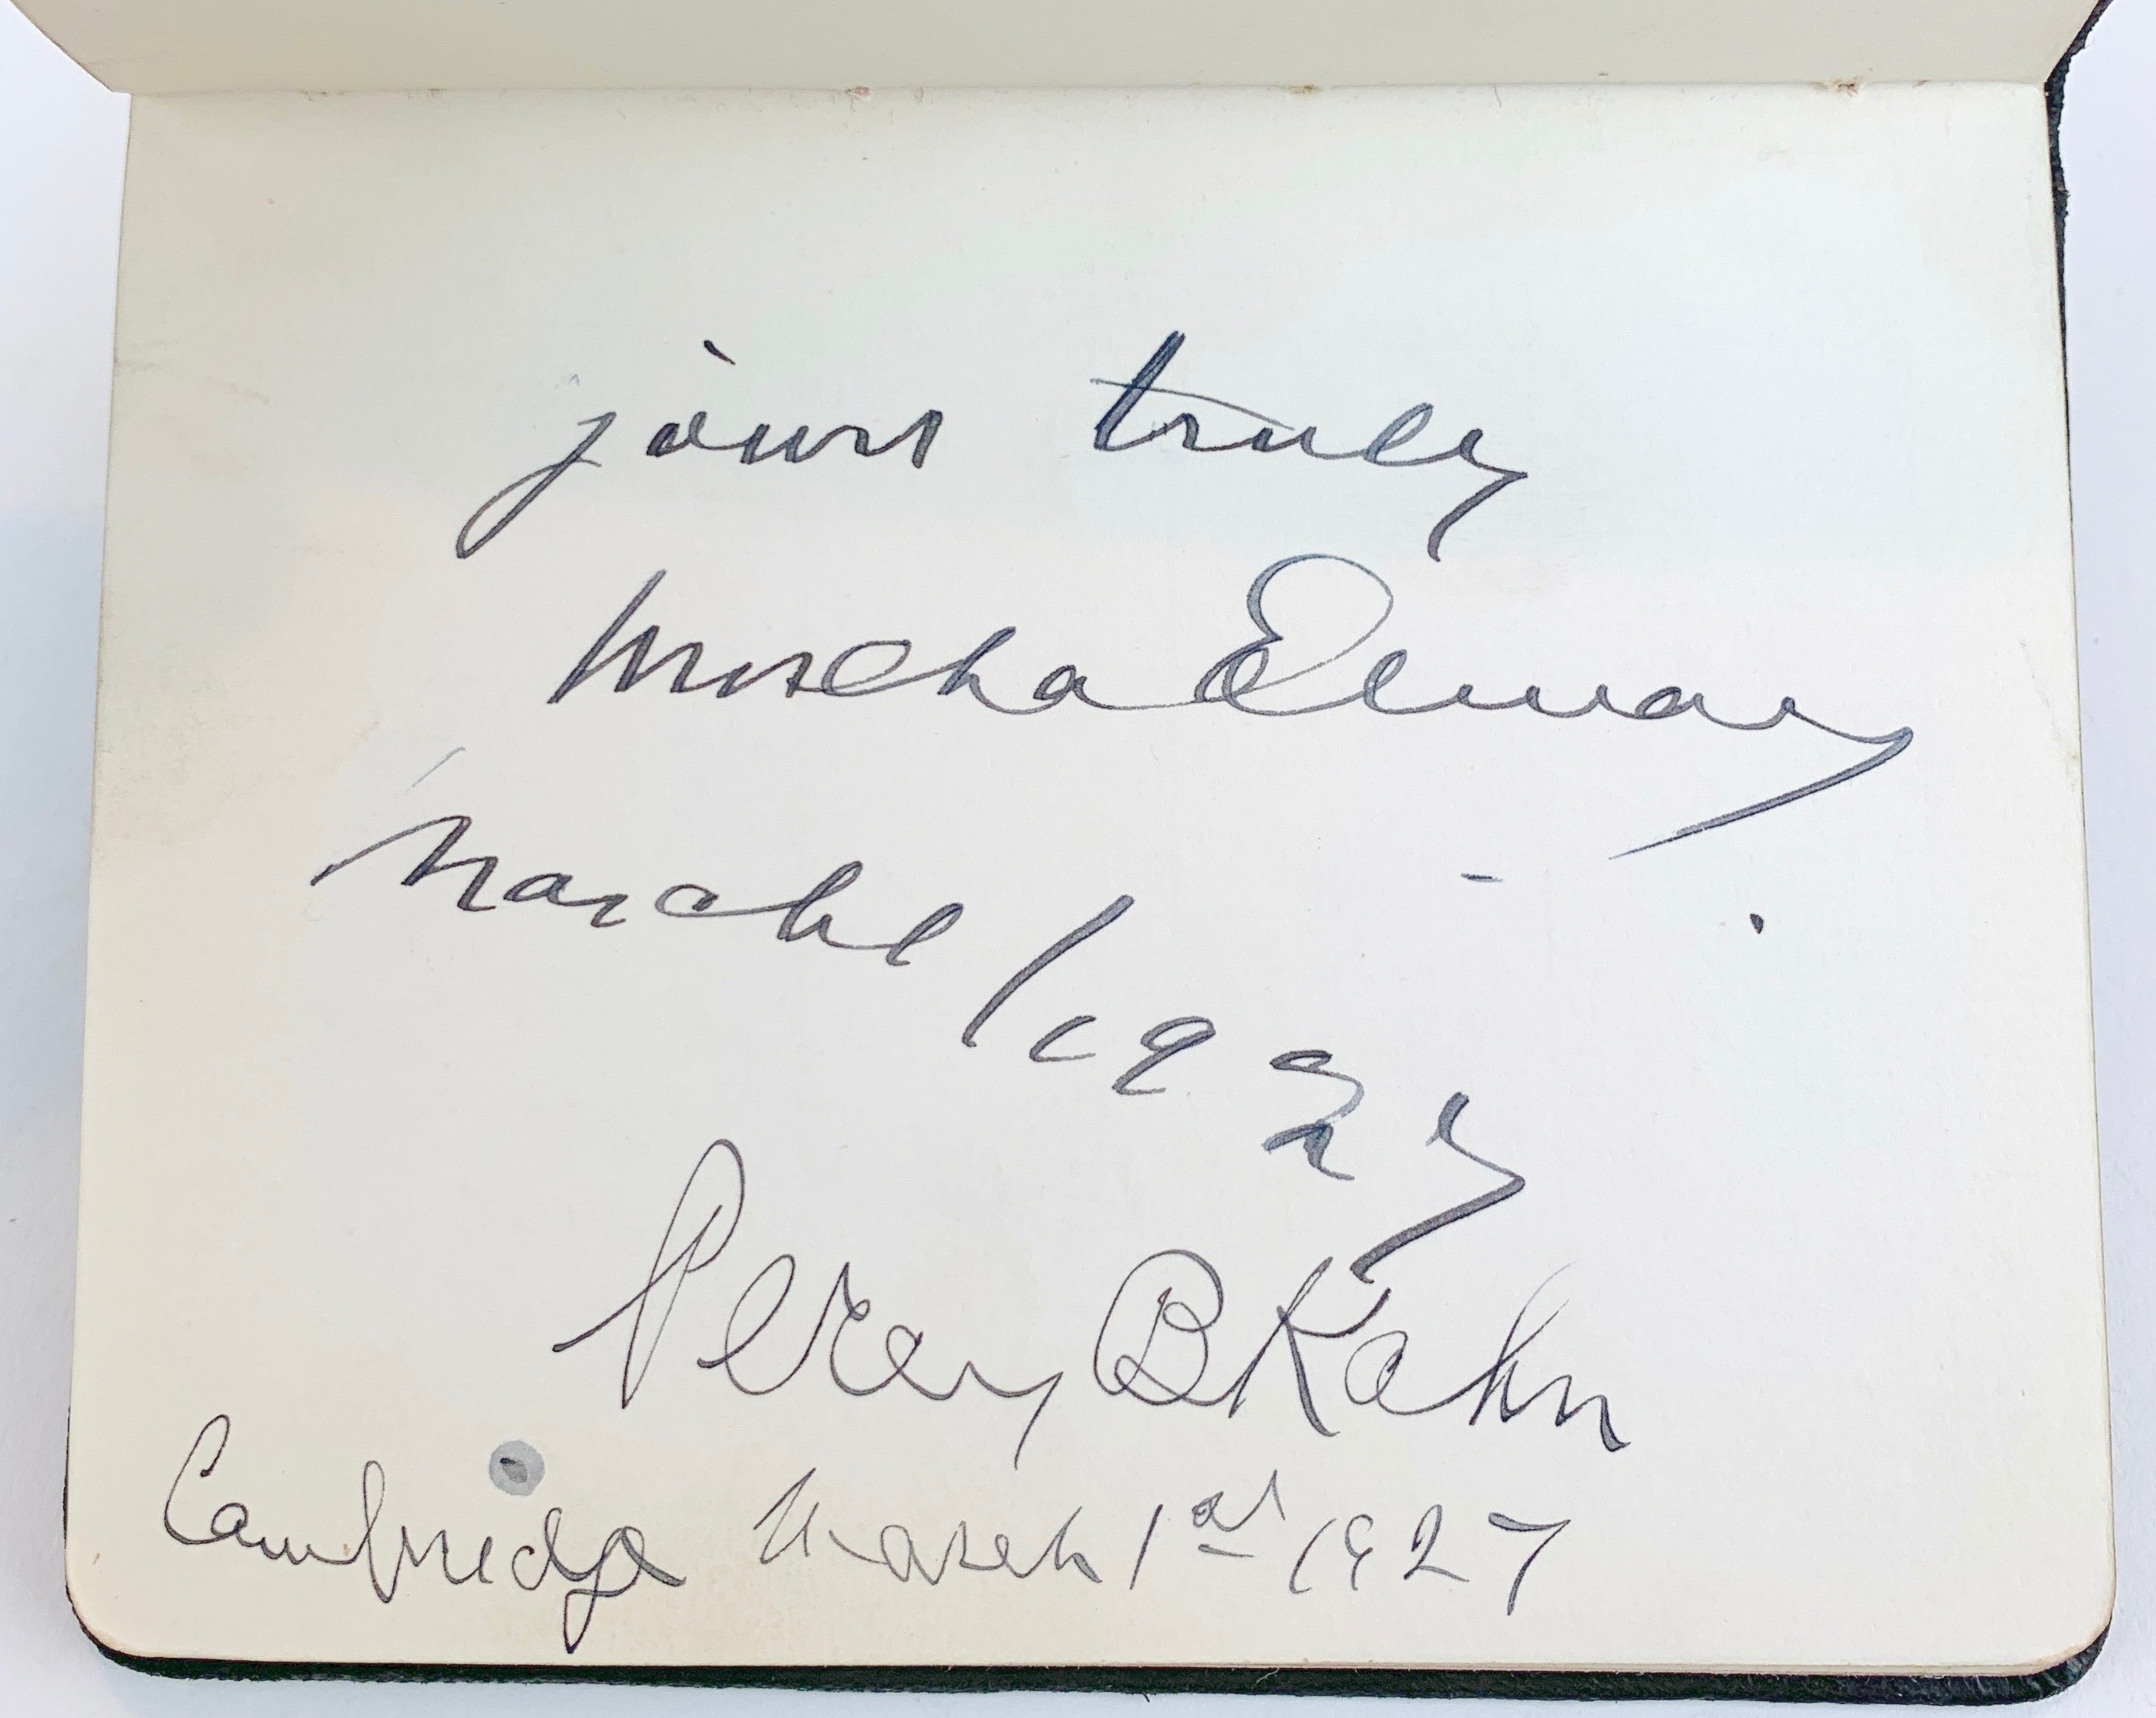 yours truly
Mischa Elman
March 1 1927
Percy B Kahn
Cambridge March 1st 1927